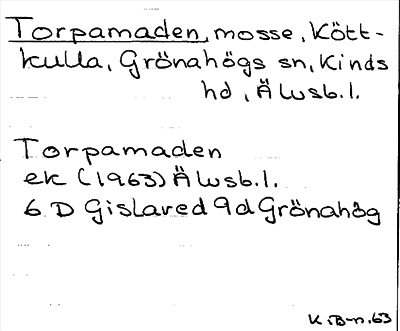 Torpamaden, mosse, Kött-
kulla, Grönahögs sn, Kinds
hd, Älvsb. l.
Torpamaden
ek (1963) Älvsb. l.
6 D Gislaved 9d Grönahög
K. B-n. 63